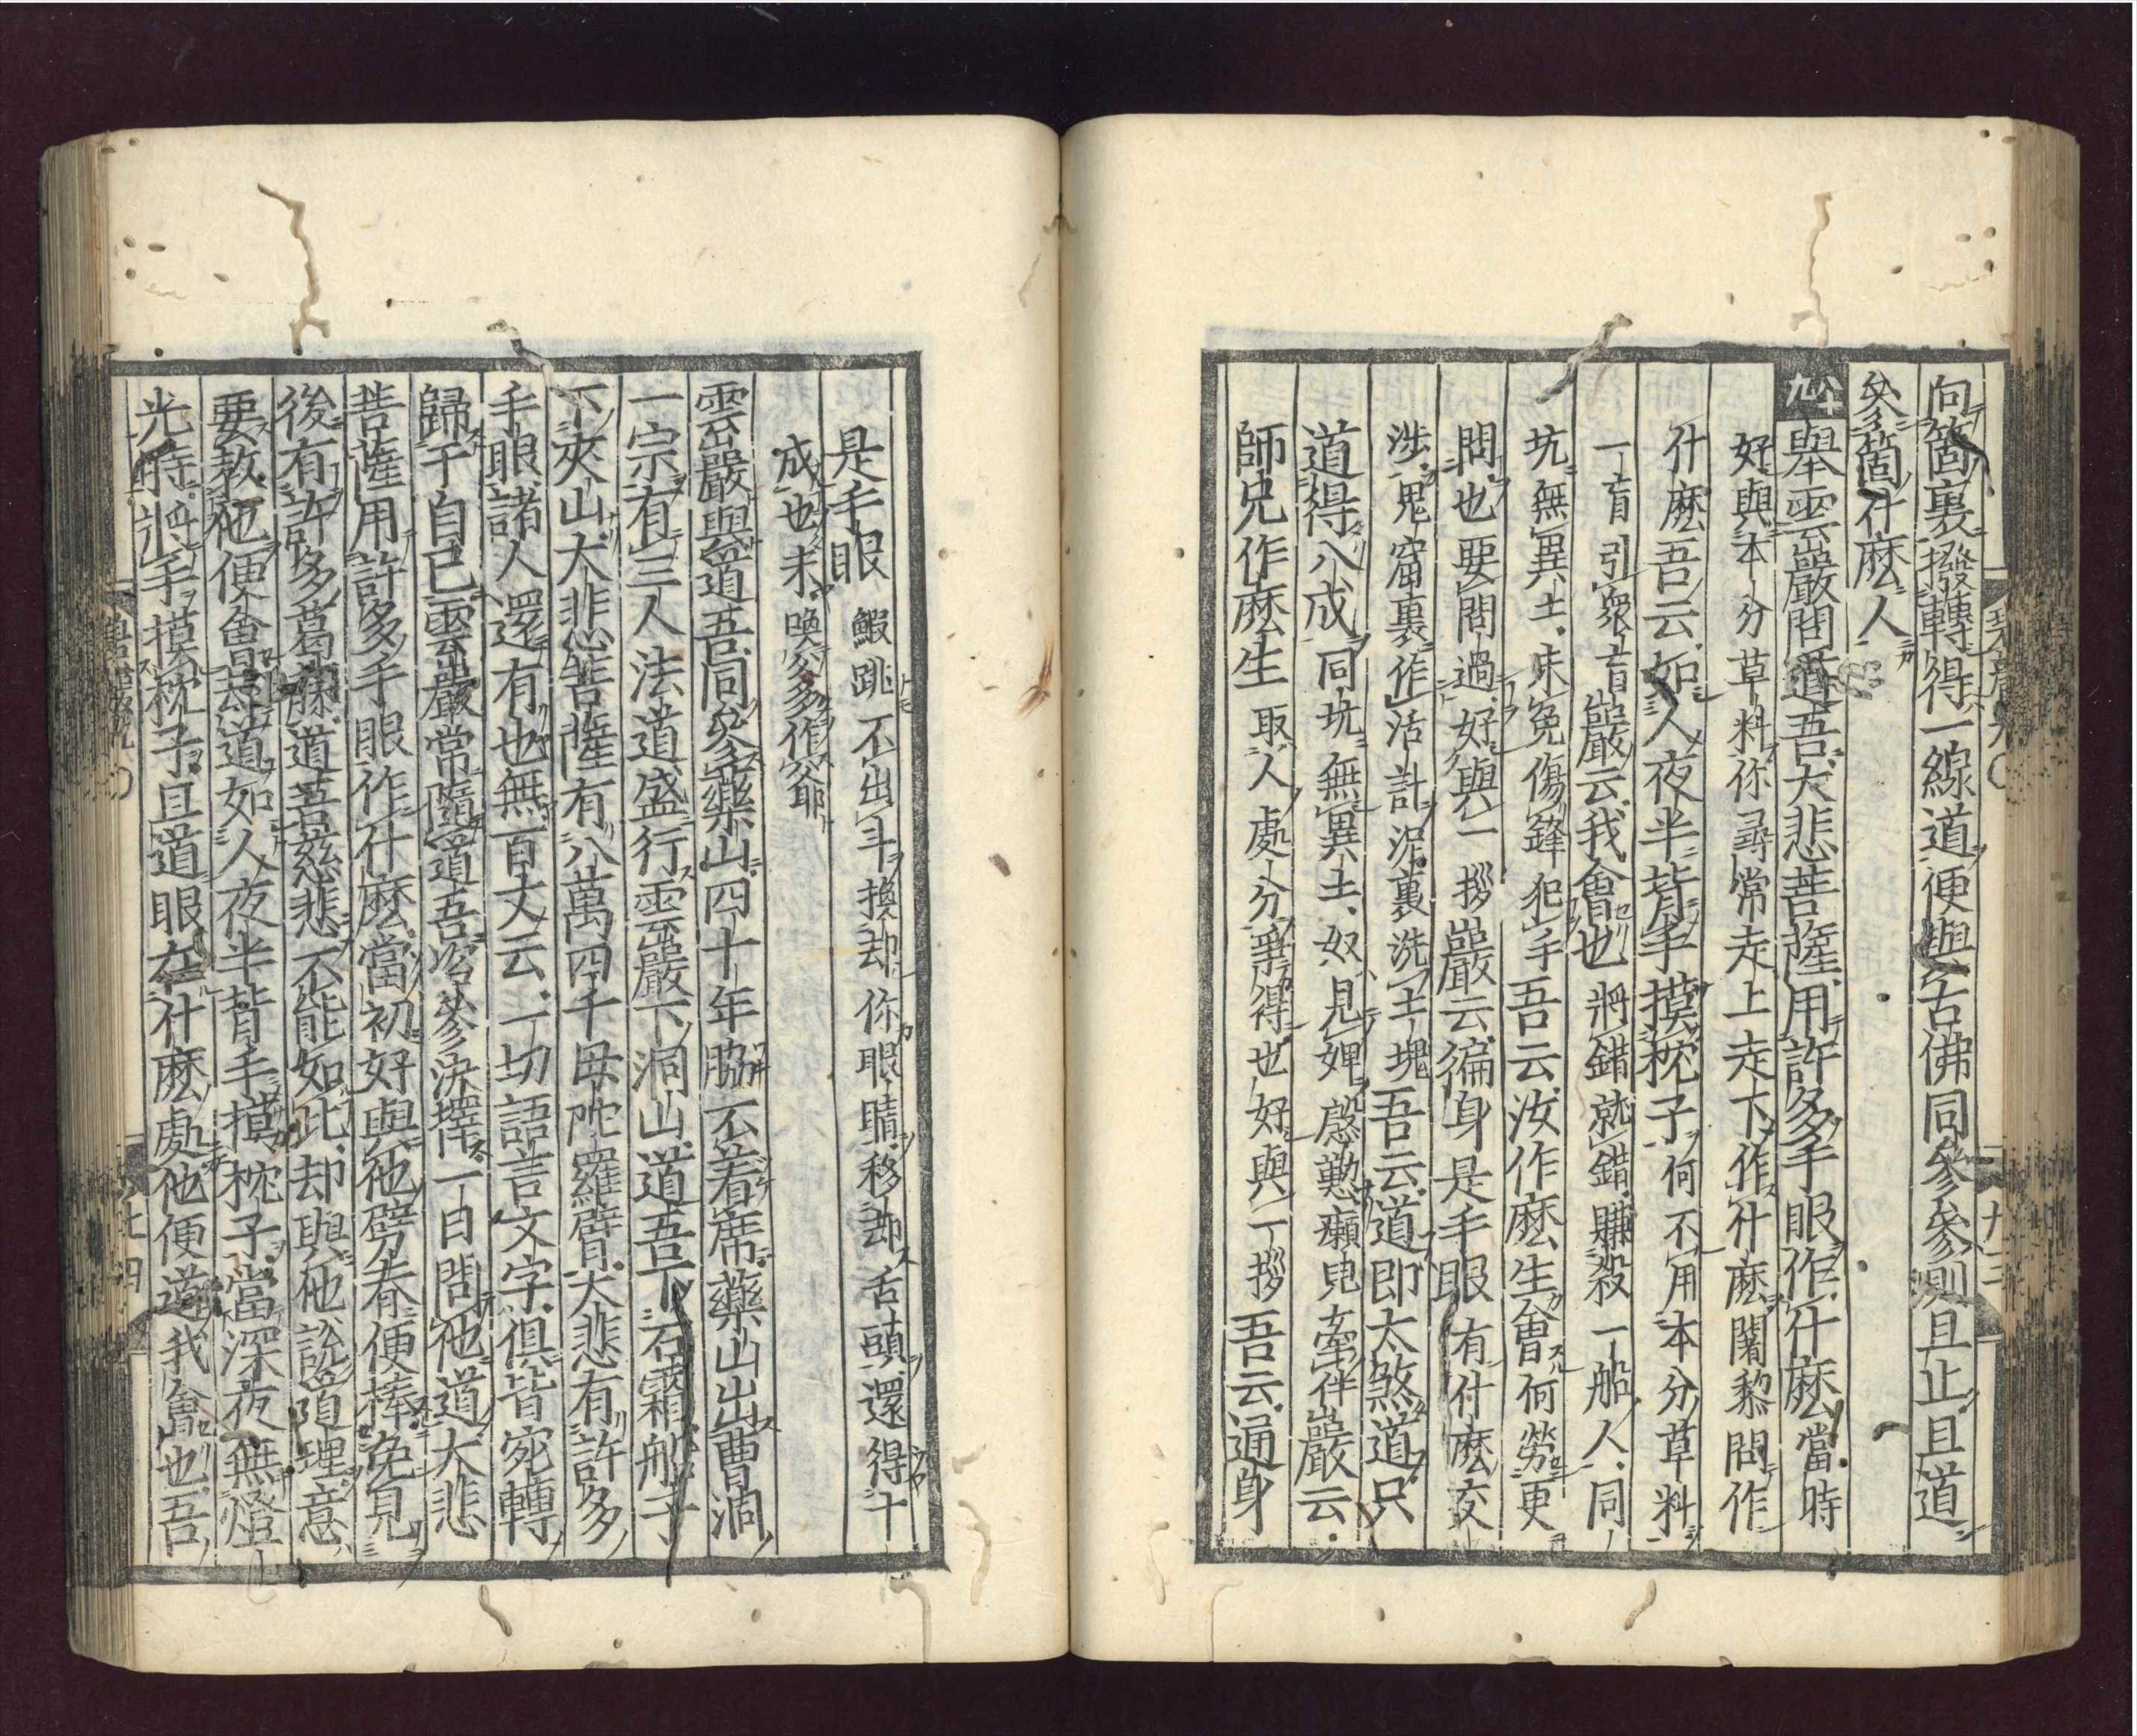 向箇裏撥轉得一線道便與古佛同參參則且止且道
參箇什麽人
八十九
舉雲巖問道吾大悲菩薩用許多手眼作什麽當時
好與本分草料你尋常走上走下作什麽闍黎問作
什麽吾云如人夜半背手摸枕子何不用本分草料
一盲引衆盲巖云我會也將錯就錯賺殺一船人同
坑無異土未免傷鋒犯手吾云汝作麽生會何勞更
問也要問過好與一拶巖云徧身是手眼有什麽交
涉鬼窟裏作活計泥裏洗土塊吾云道即太煞道只
道得八成同坑無異土奴見婢慇懃癩兒牽伴巖云
師兄作麽生取人處分爭得也好與一拶吾云通身
是手眼鰕跳不出斗換却你眼睛移却舌頭還得十
成也未喚爹多作爺
雲巖與道吾同參藥山四十年脇不着席藥山出曹洞
一宗有三人法道盛行雲巖下洞山道吾下石霜船子
下夾山大悲菩薩有八萬四千母陀羅臂大悲有許多
手眼諸人還有也無百丈云一切語言文字俱皆宛轉
歸于自己雲巖常隨道吾咨參決擇一日問他道大悲
菩薩用許多手眼作什麽當初好與他劈脊便棒免見
後有許多葛藤道吾慈悲不能如此却與他說道理意
要教他便會却道如人夜半背手摸枕子當深夜無燈
光時將手摸枕子且道眼在什麽處他便道我會也吾
七四